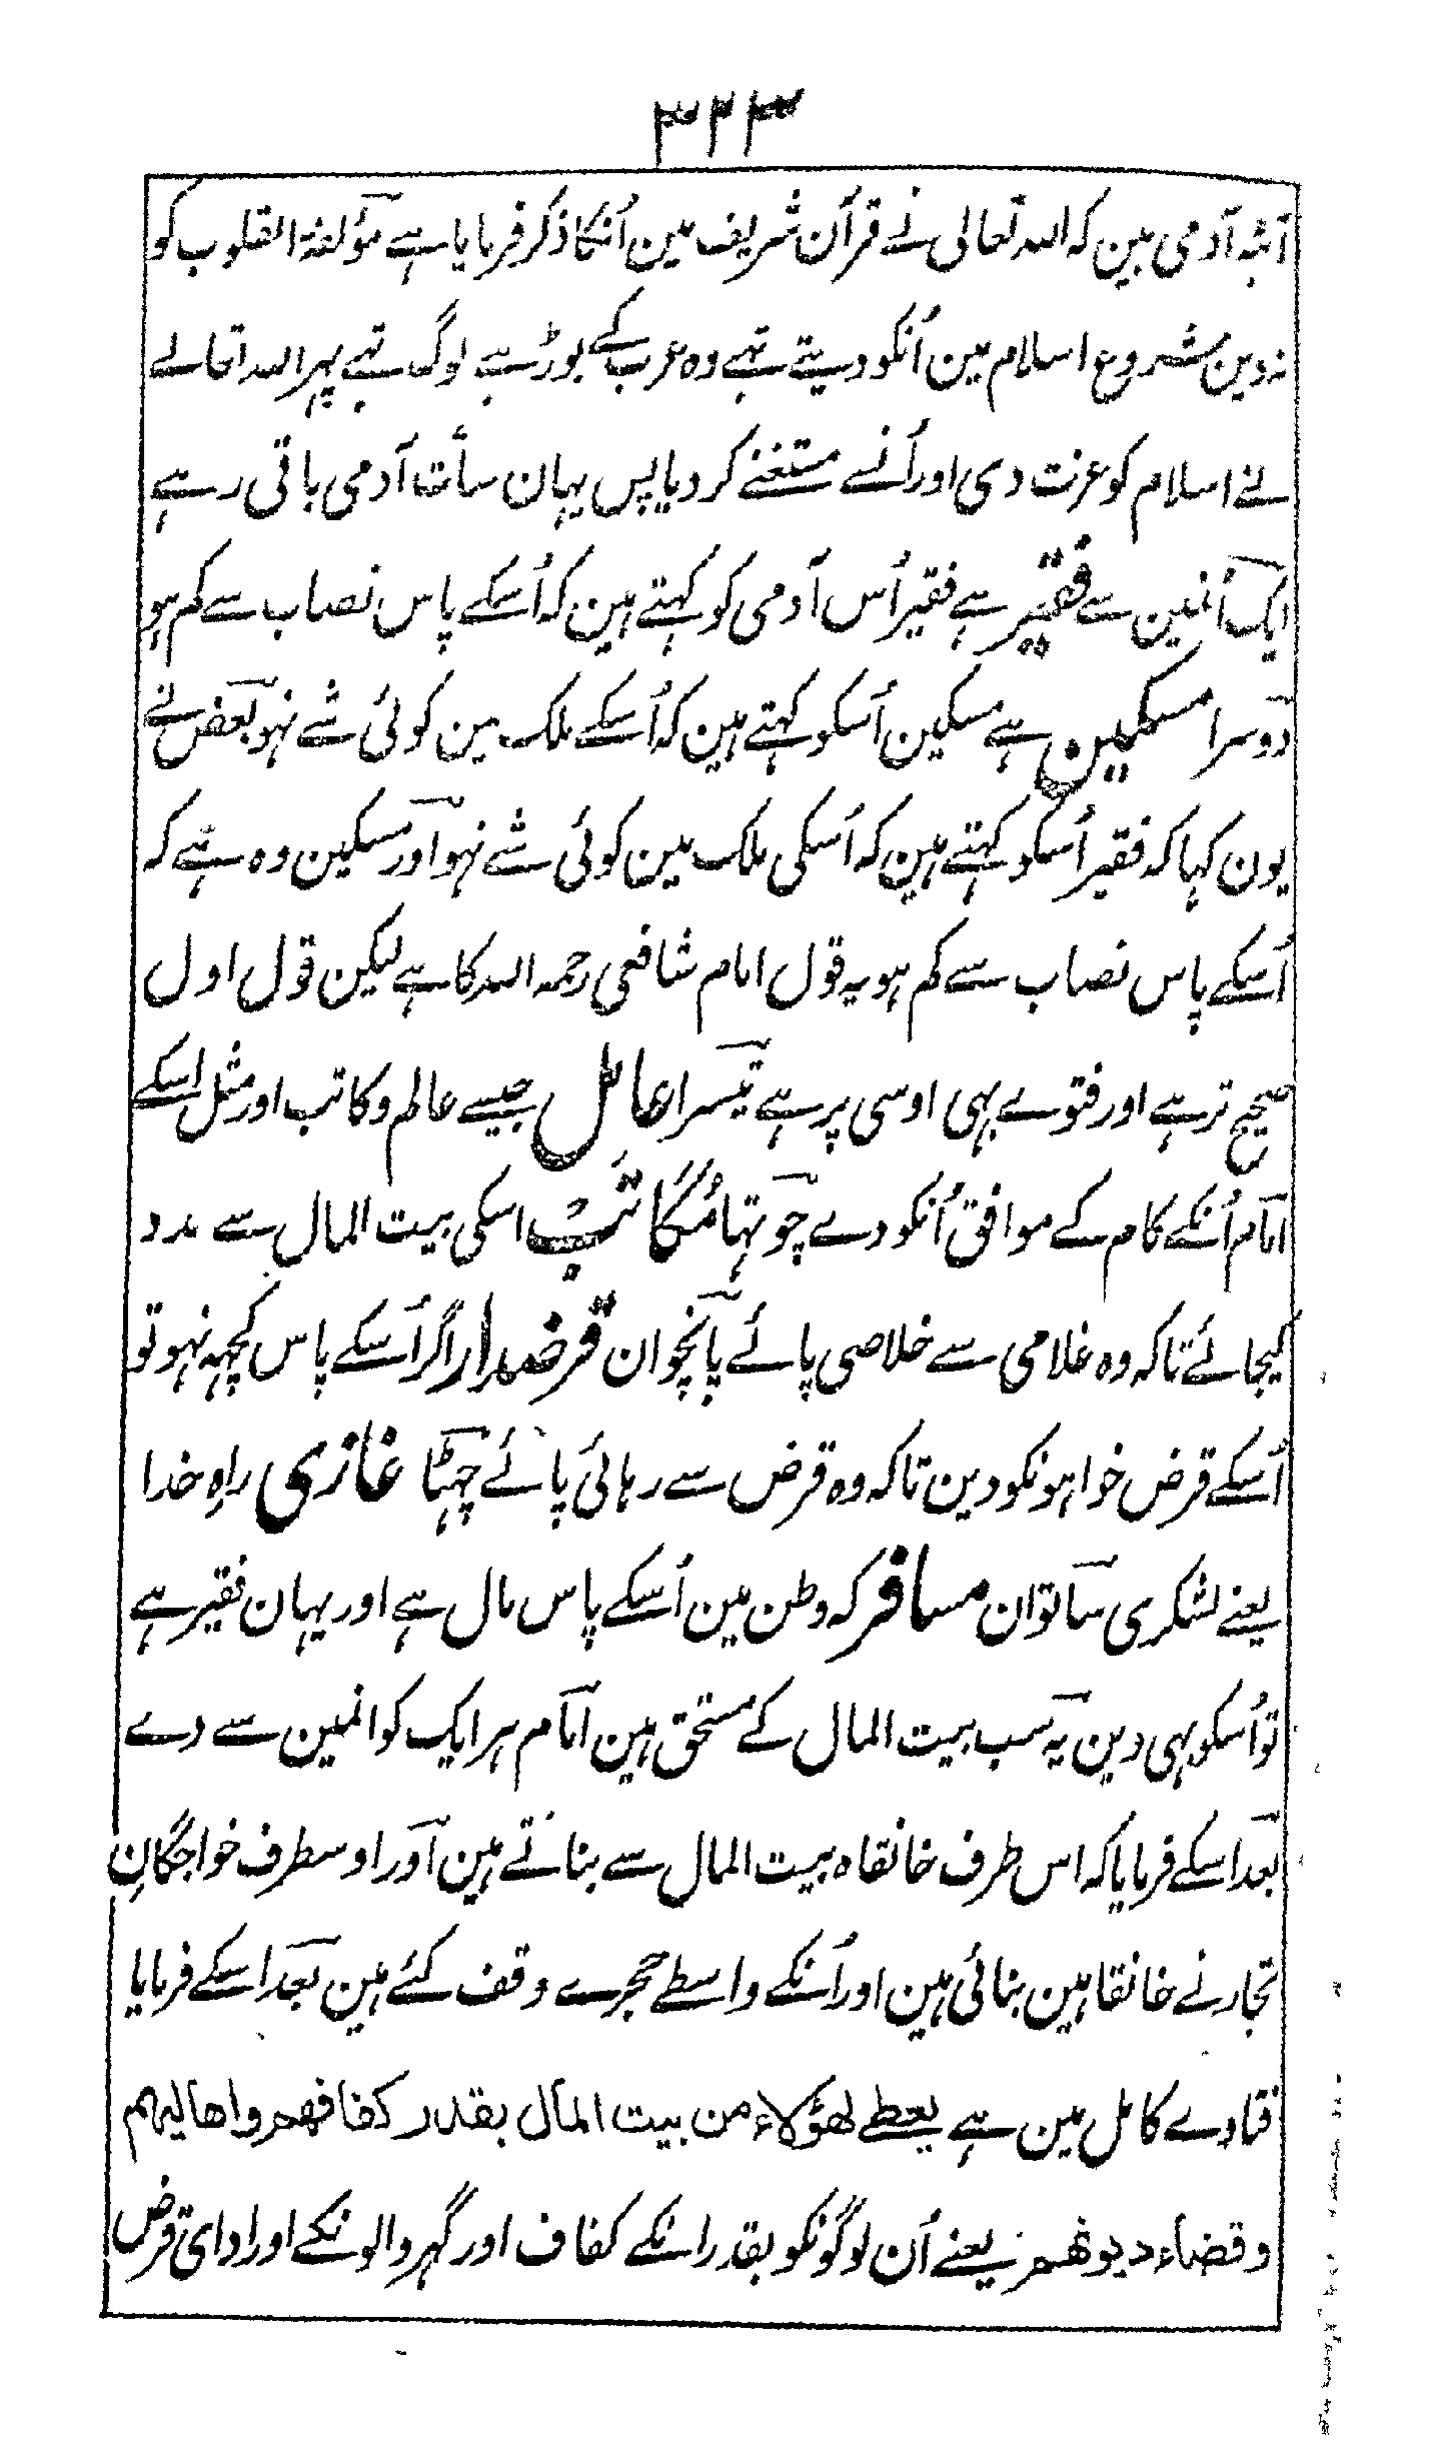 ۳۲۳
آٹہہ آدمی ہین کہ اللہ تعالی نے قرآن شریف مین اُنکا ذکر فرمایا ہے مؤلفۃ القلوب کو
نہ دین شروع اسلام مین اُنکو دیتے تہے وہ عرب کے بوڑہے لوگ تہے پہر اللہ تعالے
نے اسلام کو عزت دی اور اُنسے مستغنے کر دیا پس یہان سات آدمی باقی رہے
ایک اُنمین سے فقیر ہے فقیر اُس آدمی کو کہتے ہین کہ اُسکے پاس نصاب سے کم ہو
دوسرا مسکین ہے مسکین اُسکو کہتے ہین کہ اُسکے ملک مین کوئی شے نہو بعض نے
یون کہا کہ فقیر اُسکو کہتے ہین کہ اُسکی ملک مین کوئی شے نہو اور مسکین وہ ہے کہ
اُسکے پاس نصاب سے کم ہو یہ قول امام شافعی رحمہ اللہ کا ہے لیکن قول اول
صحیح تر ہے اور فتوے بہی اوسی پر ہے تیسرا عامل جیسے عالم و کاتب اور مثل اسکے
امام اُنکے کام کے موافق اُنکو دے چوتہا مُکاتَب اسکی بیت المال سے مدد
کیجائے تاکہ وہ غلامی سے خلاصی پائے پانچوان قرضدار اگر اُسکے پاس کچہہ نہو تو
اُسکے قرض خواہونکو دین تاکہ وہ قرض سے رہائی پائے چہٹا غازی راہِ خدا
یعنے لشکری ساتوان مسافر کہ وطن مین اُسکے پاس مال ہے اور یہان فقیر ہے
تو اُسکو بہی دین یہ سب بیت المال کے مستحق ہین امام ہر ایک کو انمین سے دے
بعد اسکے فرمایا کہ اس طرف خانقاہ بیت المال سے بناتے ہین اور اوسطرف خواجگانِ
تجار نے خانقاہین بنائی ہین اور اُنکے واسطے حجرے وقف کئے ہین بعد اسکے فرمایا
فتاوے کامل مین ہے یعطے لھؤلاء من بیت المال بقدر کفافھم و اھالیہم
و قضاء دیونھم یعنے اُن لوگونکو بقدر انکے کفاف اور گہر والونکے اور ادای قرض